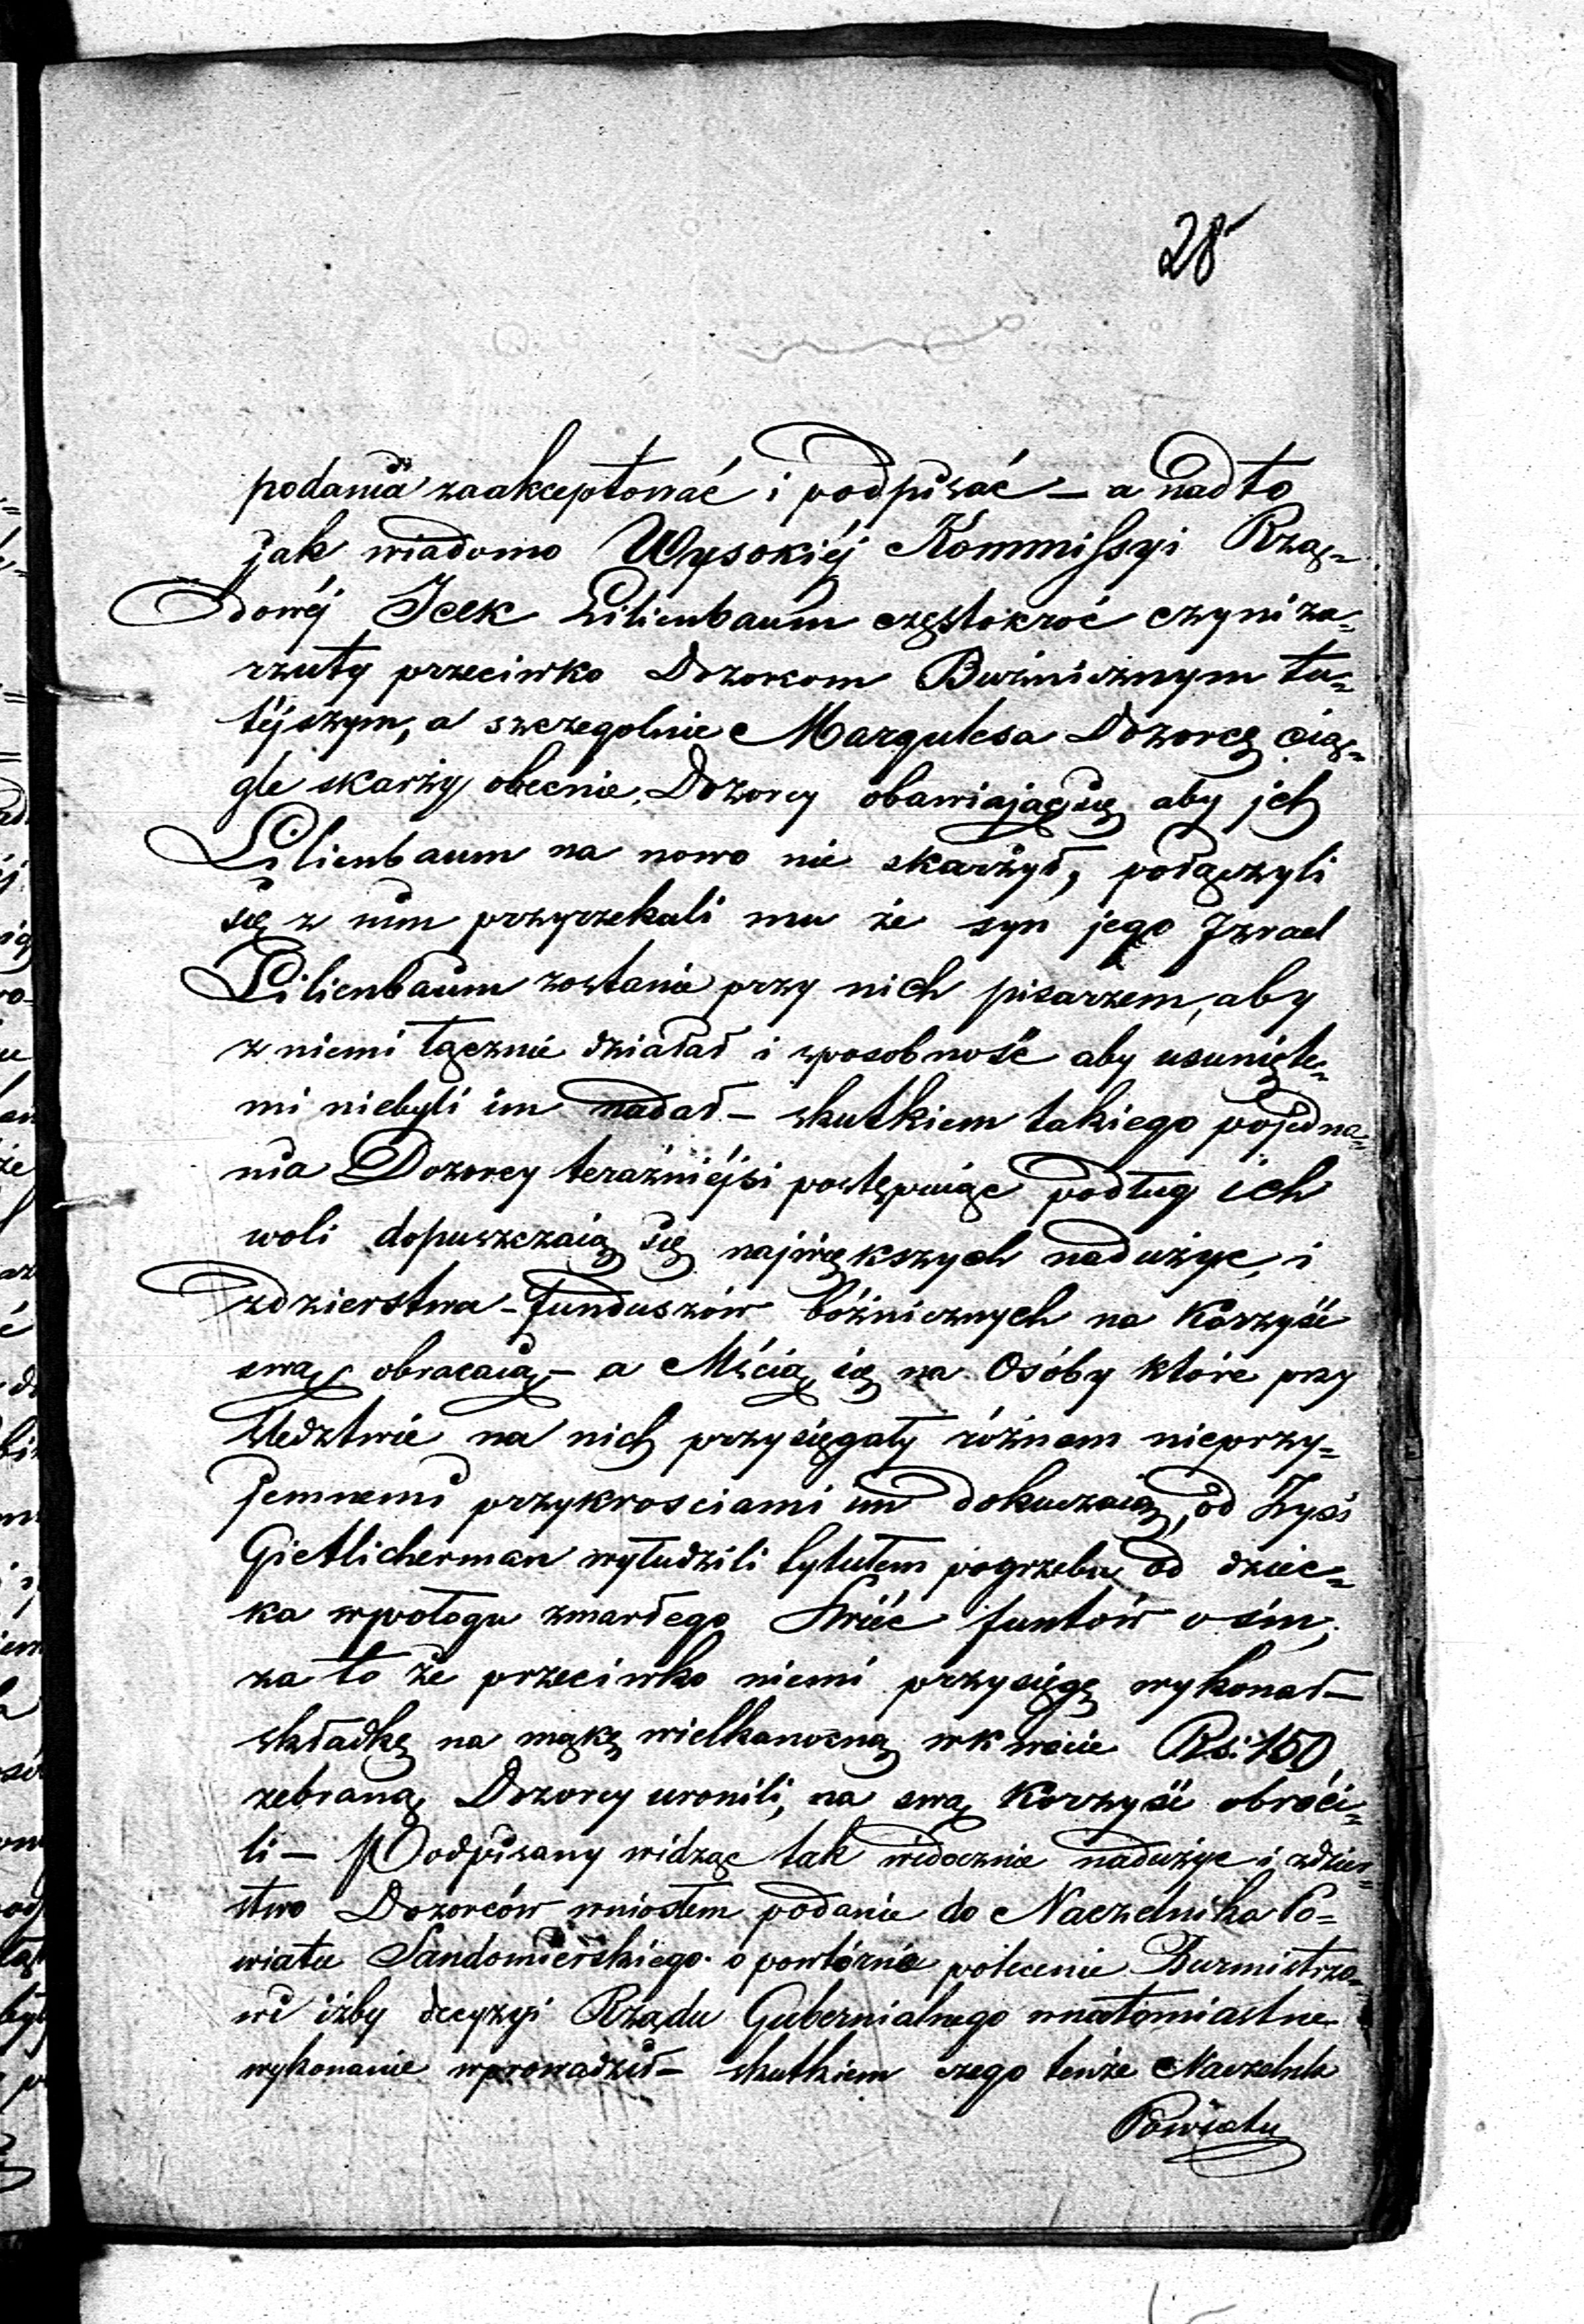 28
podania zaakceptować i podpisać — a nadto
jak wiadomo Wysokiéj Kommissyi Rzą=
dowéj Icek Lilienbaum częstokroć czyni za=
rzuty przeciwko Dozorcom Bużnicznym tu=
téjszym, a szczegolnie Margulesa Dozorcę cią=
gle skarży obecnie Dozorcy obawiając się aby ich
Lilienbaum na nowo nie skarżył, połączyli
się z nim przyrzekali mu że syn jego Izrael
Lilienbaum zostanie przy nich pisarzem, aby
z niemi łącznie działał i sposobność aby usunięte=
mi niebyli im nadał — skutkiem takiego pojedna=
nia Dozorcy teraźniéjsi postępuiąc podług ich
woli dopuszczaią się największych nadużyć i
zdzierstwa — funduszów bóżnicznych na korzyść
swą obracaią — a Mścią się na Osóby które przy
śledztwie na nich przysięgały różnem nieprzy=
jemnemi przykrosciami im dokuczaią, od Zysi
Gietlicherman wyłudzili tytułem pogrzebu od dziec=
ka w połogu zmarłego Swiéc funtów ośm,
za to że przeciwko niemi przysięgę wykonał —
składkę na mąkę wielkanocną w kwocie Rs: 150
zebraną Dozorcy uronili, na swą korzyść obróci=
li — Podpisany widząc tak widocznie nadużyc i zdzier=
stwo Dozorców wniosłem podanie do Naczelnika Po=
wiatu Sandomierskiego o powtórne polecenie Burmistrzo=
wi iżby decyzyi Rządu Gubernialnego w natomiastne
wykonanie wprowadził — skutkiem czego tenże Naczelnik
Powiatu